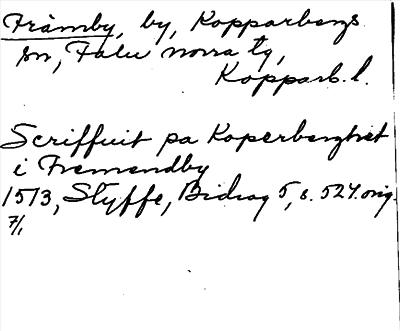 Främby, by, Kopparbergs
sn, Falu norra tg,
Kopparb. l.
Scriffuit pa Koperberghet
i Fremendby
1513, Styffe, Bidrag 5, s. 524. orig.
7/1